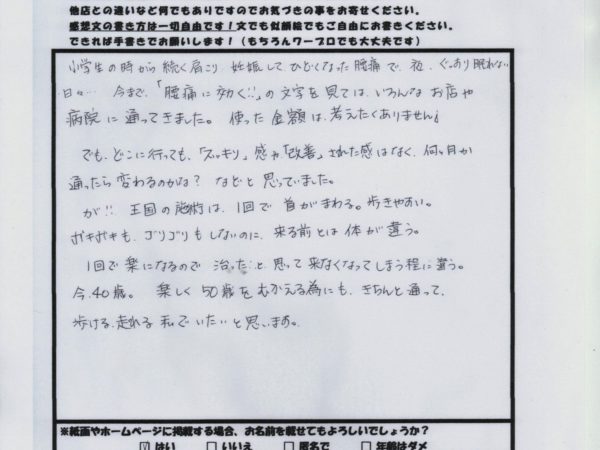 他店との違いなど何でもありですのでお気づきの事をお寄せください。
感想文の書き方は一切自由です!文でも似顔絵でもご自由にお書きください。
できれば手書きでお願いします!(もちろんワープロでも大丈夫です)
小学生の時から続く肩こり、妊娠してひどくなった腰痛で、夜、ぐっすり眠れない
日々… 今まで、「腰痛に効く!!」の文字を見ては、いろんなお店や
病院に通ってきました。使った金額は、考えたくありません!
でも、どこに行っても、「スッキリ」感や「改善」された感はなく、何ヶ月か
通ったら変わるのかな? などと思っていました。
が!! 王国の施術は、1回で首がまわる。歩きやすい。
ボキボキも、ゴリゴリもしないのに、来る前とは体が違う。
1回で楽になるので治ったと思って来なくなってしまう程に違う。
今、40歳。 楽しく50歳をむかえる為にも、きちんと通って、
歩ける、走れる私でいたいと思います。
※紙面やホームページに掲載する場合、お名前を載せてもよろしいでしょうか?
☑はい □いいえ □匿名で □年齢はダメ